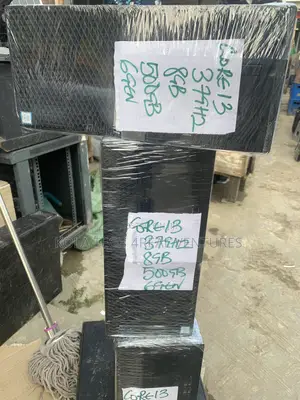 CORE I3
3.7GHZ
8GB
500GB
6GEN
CORE I3
3.7GHZ
8GB
500GB
6GEN
CORE I3